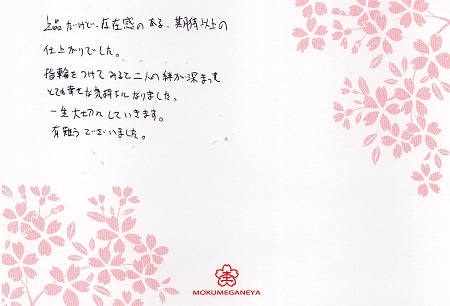 上品だけど、存在感のある、期待以上の
仕上がりでした。
指輪をつけてみると二人の絆が深まって
とても幸せな気持ちになりました。
一生大切にしていきます。
有難うございました。
MOKUMEGANEYA